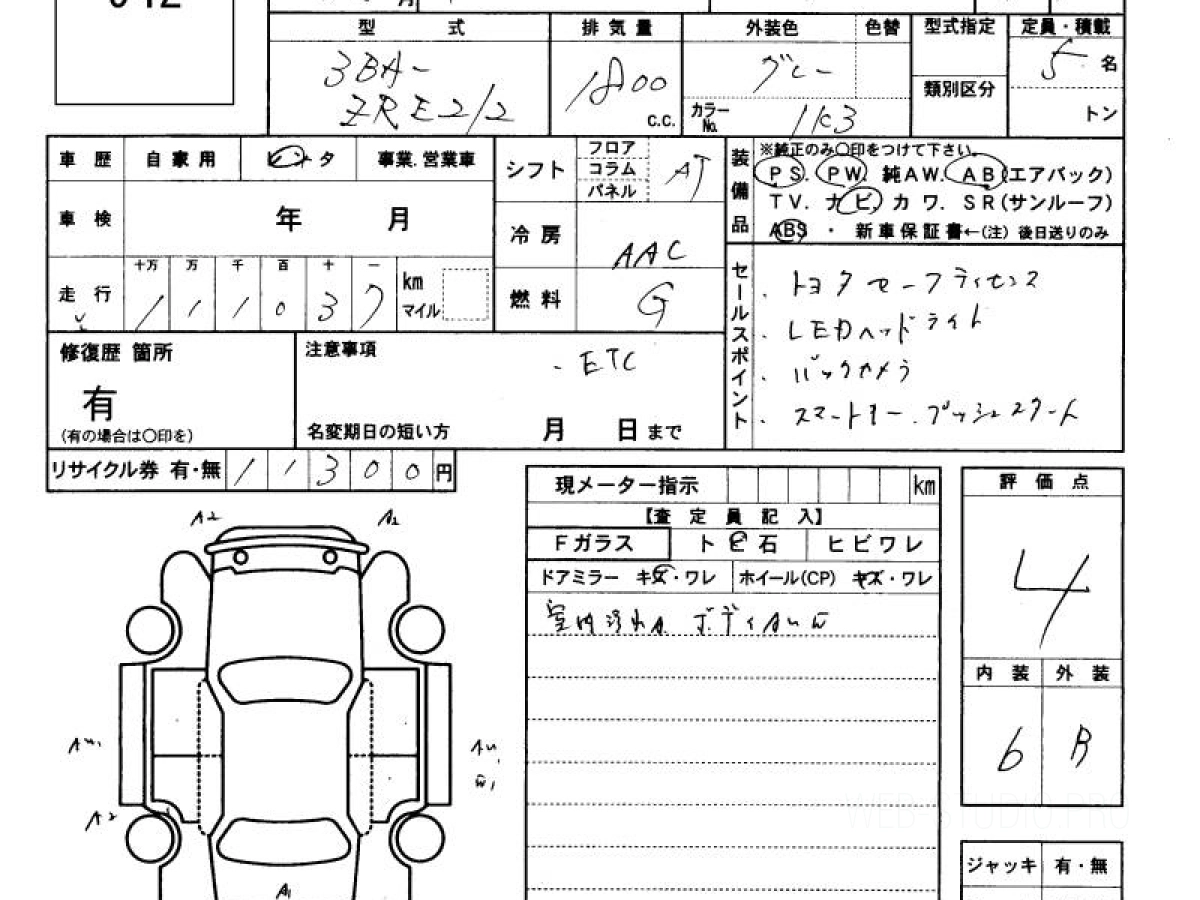 型 式 排 気 量 外装色 色替 型式指定 定員・積載
3BA-
ZRE212
1800
C.C.
グレー
類別区分
5 名
カラーNo. 1K3
トン
車 歴 自 家 用 レンタ 事業.営業車
シフト フロア コラム パネル AT
装備品
※純正のみ〇印をつけて下さい。
PS. PW. 純AW. AB(エアバック)
TV. ナビ. カワ. SR(サンルーフ)
ABS ・ 新車保証書←(注) 後日送りのみ
車 検 年 月
冷 房 AAC
走 行
十万 万 千 百 十 一
1 1 1 0 3 7
km
マイル
燃 料 G
セールスポイント
・トヨタセーフティセンス
・LEDヘッドライト
・バックカメラ
・スマートキー.プッシュスタート
修復歴 箇所
有
(有の場合は〇印を)
注意事項
・ETC
名変期日の短い方 月 日 まで
リサイクル券 有・無 1 1 3 0 0 円
現メーター指示 km
【査 定 員 記 入】
Fガラス トビ石 ヒビワレ
ドアミラー キズ・ワレ ホイール(CP) キズ・ワレ
室内汚れA ボディAUW
評 価 点
4
内 装 外 装
6 B
ジャッキ 有・無
A2 A2
AU1
AU1
W1
A2
A1
WEB-STUDIO.PRO